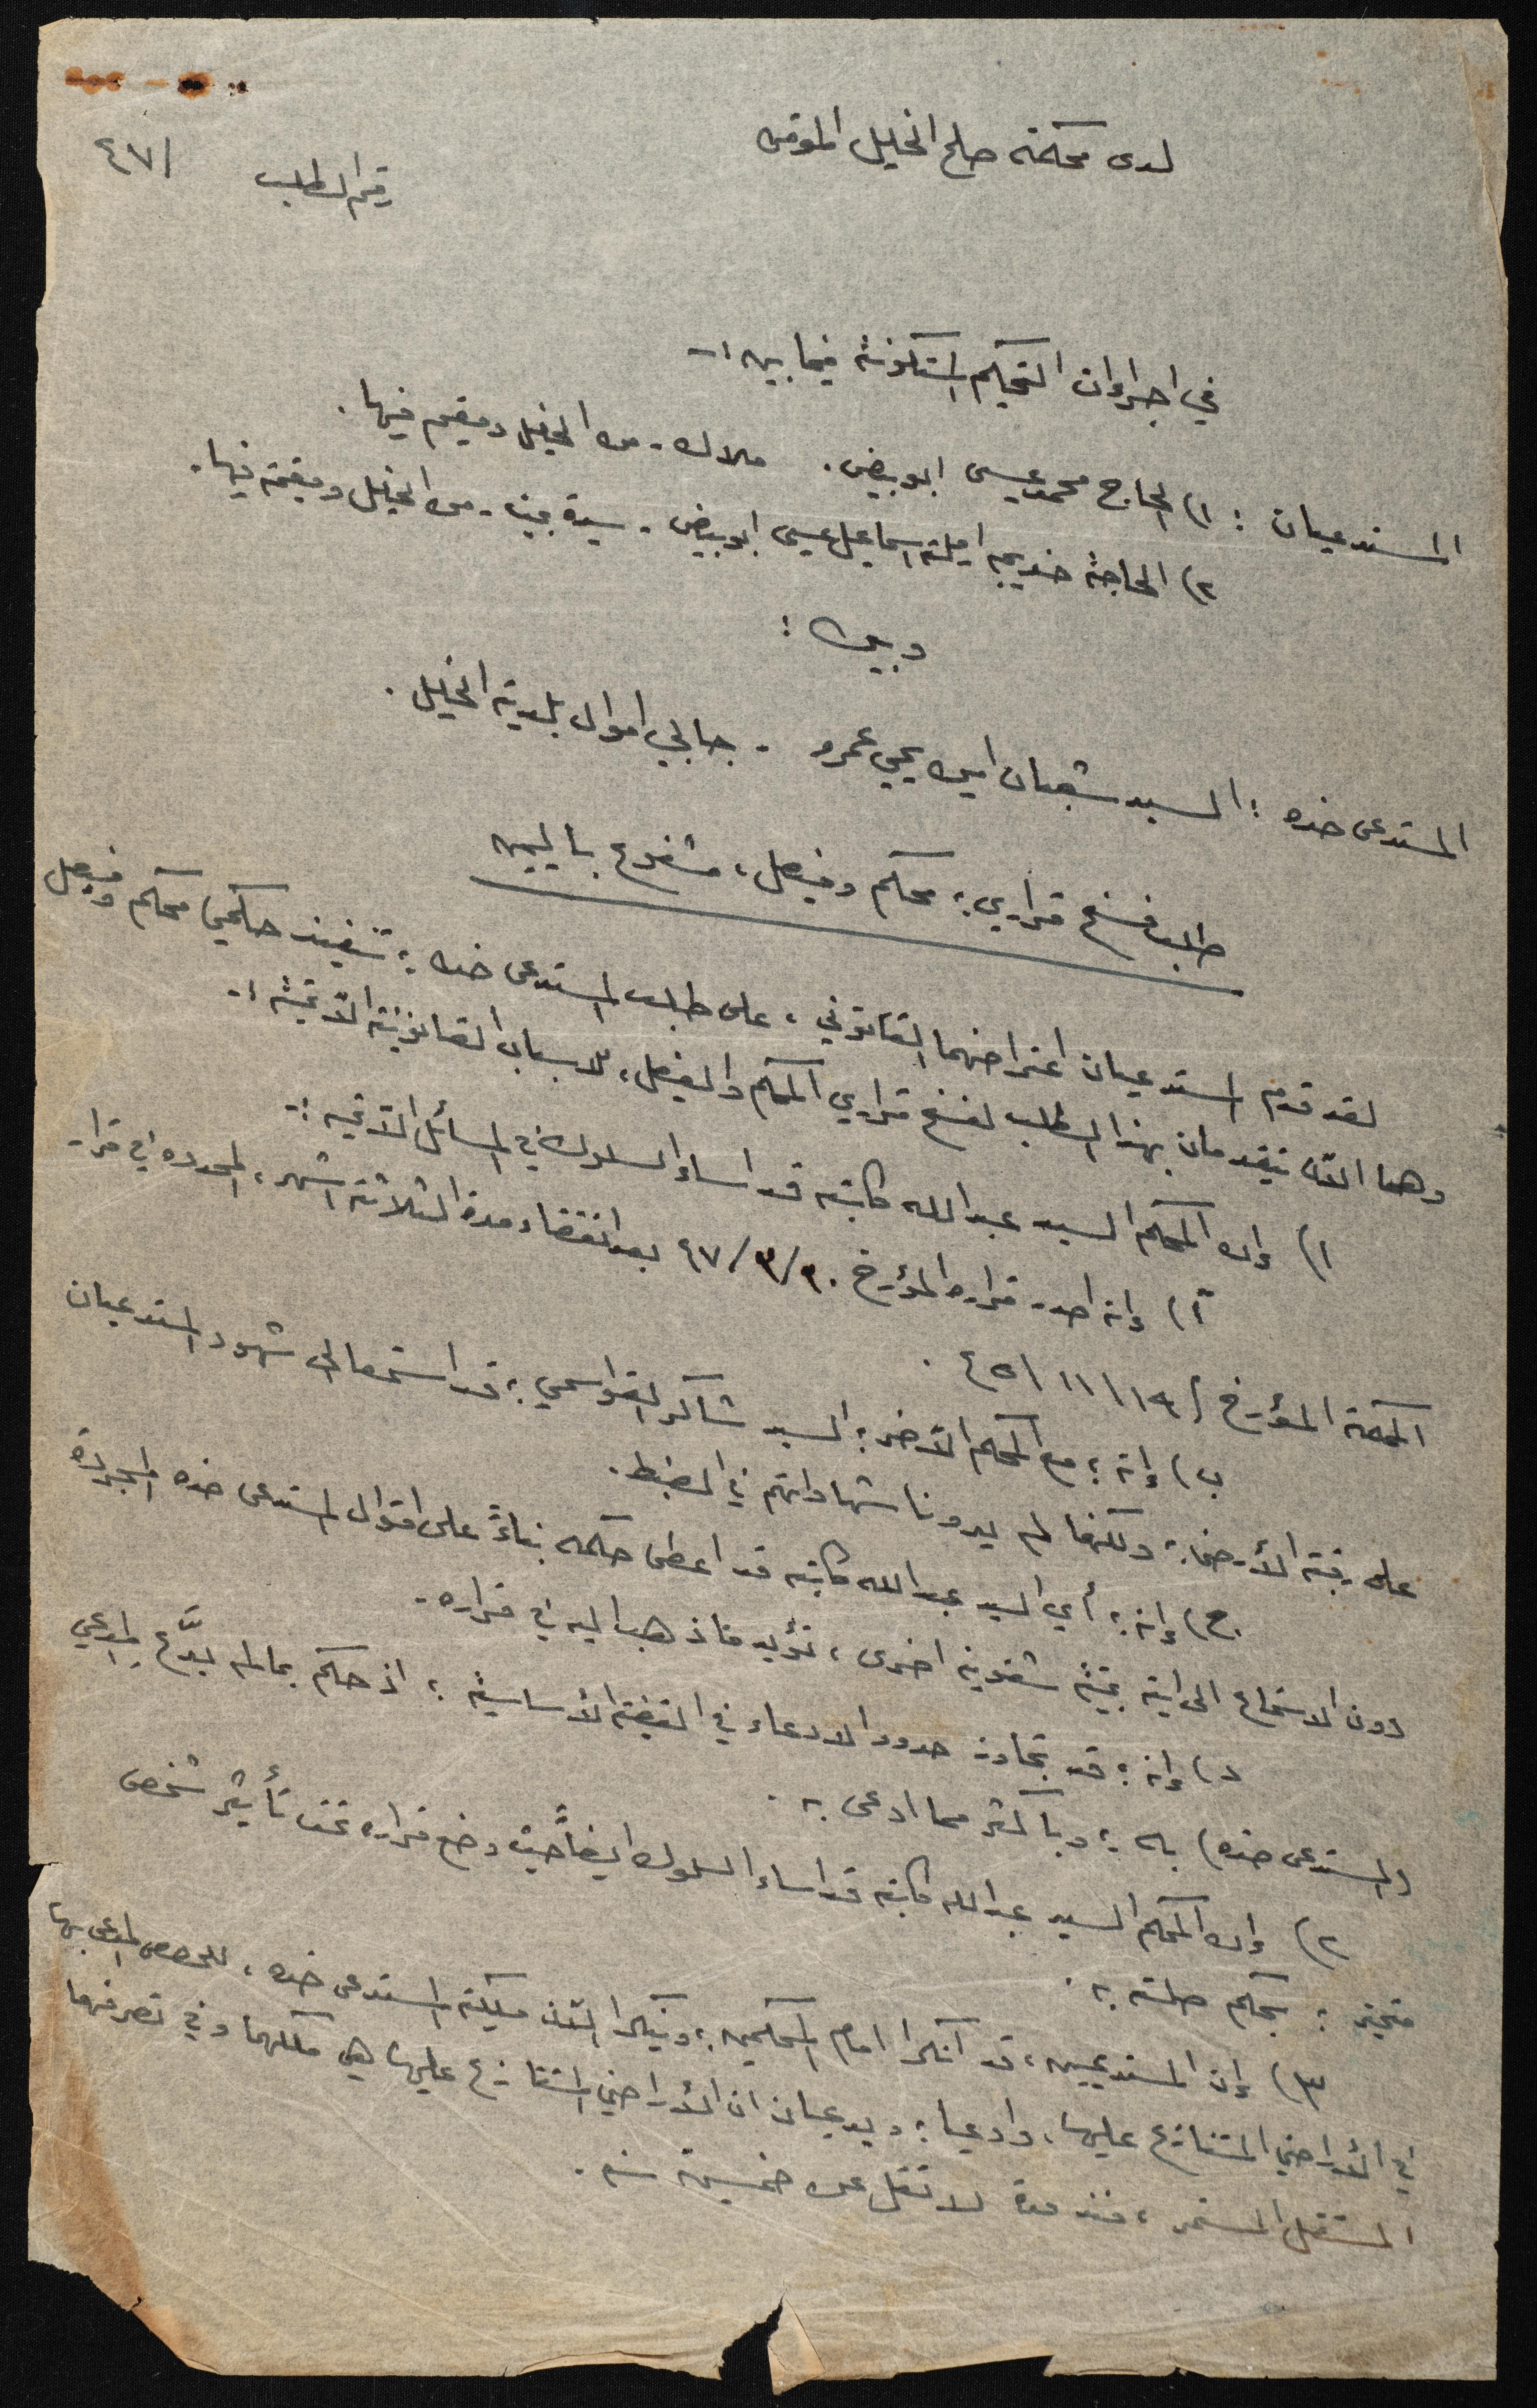 لدى محكمة صلح الخليل الموقره
رقم الطلب /٤٧
في اجراءات التحكيم المتكونة فيما بين :-
المستدعيان : ١) الحاج محمد عيسى ابو بيض . ملاك - من الخليل ومقيم فيها .
٢) الحاجة خديجه ارملة اسماعيل عيسى ابو بيض - سيدة بيت - من الخليل ومقيمة فيها .
وبين :
المستدعى ضده : السيد شعبان امين يحيى عمرو - جابي اموال بلدية الخليل .
طلب فسخ قراري : محكم وفيصل ، مشفوع باليمين
لقد قدم المستدعيان اعتراضهما القانوني ، على طلب المستدعى ضده : تنفيذ حكمي محكم وفيصل
وهما الآن يتقدمان بهذا الطلب لفسخ قراري المحكم والفيصل ، للاسباب القانونية الآتية :-
١) إن المحكم السيد عبد الله كاتبه قد اساء السلوك في المسائل الآتيه :-
آ) إنه اصدر قراره المؤرخ ٣٠/٣/٤٧ بعد انقضاء مدة الثلاثة اشهر ، المحدده في قرار
المحكمة المؤرخ ١٩/١١/٤٥ .
ب) إنه ؛ مع المحكم الآخر : السيد شاكر القواسمي ؛ قد استمعا الى شهود المستدعيان
على رقبة الأرض ؛ ولكنهما لم يدونا شهاداتهم في الضبط .
ج) إنه ؛ أي السيد عبد الله كاتبه قد اعطى حكمه بناءً على اقوال المستدعى ضده المجردة
دون الاستماع الى اية بينة شفوية اخرى ، تؤيد ما ذهب اليه في قراره .
د) إنه ؛ قد تجاوز حدود الادعاء في القضية الأساسية ؛ اذ حكم بما لم يدّع المدعي
(المستدعى ضده) به ؛ وباكثر مما ادعى به .
٢) إن المحكم السيد عبد الله كاتبه قد اساء السلوك ايضاً حيث وضع قراره تحت تأثير شخص
متحيز ؛ بحكم صلته به .
٣) إن المستدعيين ، قد انكرا امام المحكمين ؛ وينكرا الآن ملكية المستدعى ضده ، للحصص المدعى بها
في الأراضي المتنازع عليها ، وادعيا ؛ ويدعيان ان الأراضي المتنازع عليها هي ملكهما وفي تصرفهما
المستقل المستمر ، منذ مدة لا تقل عن خمسين سنه .